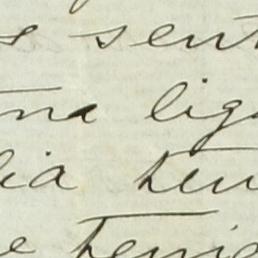 s sent
na lig
lia ten
e tenid